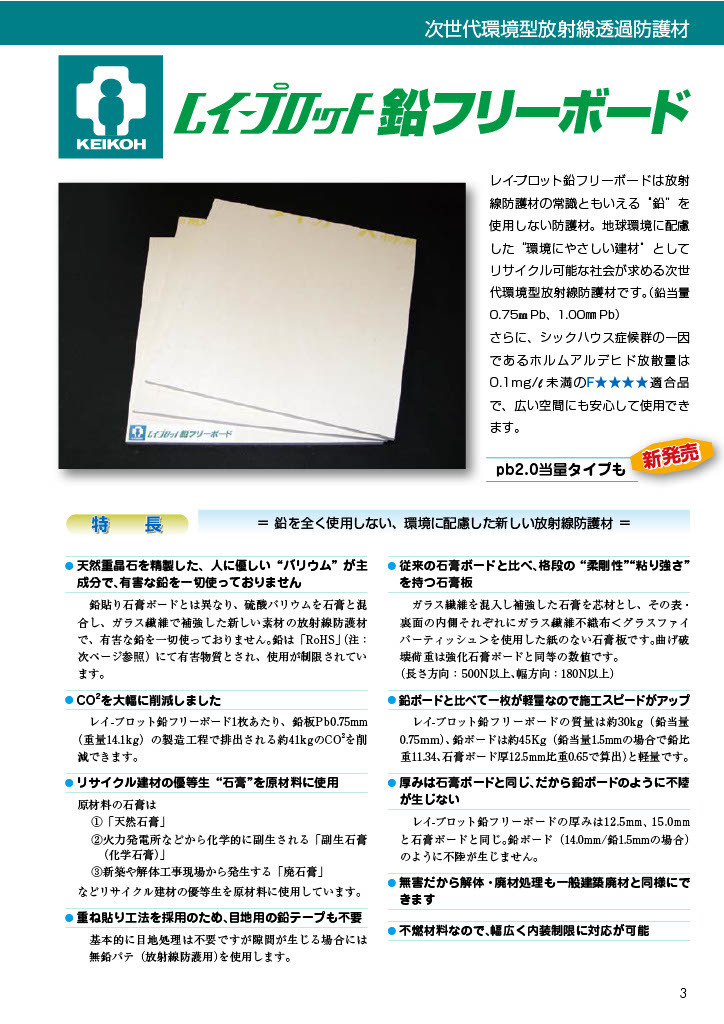 次世代環境型放射線透過防護材
KEIKOH
レイ-プロット鉛フリーボード
レイ-プロット鉛フリーボードは放射
線防護材の常識ともいえる“鉛”を
使用しない防護材。地球環境に配慮
した“環境にやさしい建材”として
リサイクル可能な社会が求める次世
代環境型放射線防護材です。（鉛当量
0.75㎜Pb、1.00㎜Pb）
さらに、シックハウス症候群の一因
であるホルムアルデヒド放散量は
0.1mg/ℓ未満のF★★★★適合品
で、広い空間にも安心して使用でき
ます。
レイ-プロット鉛フリーボード
pb2.0当量タイプも
新発売
特　長
＝ 鉛を全く使用しない、環境に配慮した新しい放射線防護材 ＝
●天然重晶石を精製した、人に優しい“バリウム”が主
成分で、有害な鉛を一切使っておりません
鉛貼り石膏ボードとは異なり、硫酸バリウムを石膏と混
合し、ガラス繊維で補強した新しい素材の放射線防護材
で、有害な鉛を一切使っておりません。鉛は「RoHS」（注：
次ページ参照）にて有害物質とされ、使用が制限されてい
ます。
●CO²を大幅に削減しました
レイ-プロット鉛フリーボード1枚あたり、鉛板Pb0.75mm
（重量14.1kg）の製造工程で排出される約41kgのCO²を削
減できます。
●リサイクル建材の優等生“石膏”を原材料に使用
原材料の石膏は
①「天然石膏」
②火力発電所などから化学的に副生される「副生石膏
（化学石膏）」
③新築や解体工事現場から発生する「廃石膏」
などリサイクル建材の優等生を原材料に使用しています。
●重ね貼り工法を採用のため、目地用の鉛テープも不要
基本的に目地処理は不要ですが隙間が生じる場合には
無鉛パテ（放射線防護用）を使用します。
●従来の石膏ボードと比べ、格段の“柔剛性”“粘り強さ”
を持つ石膏板
ガラス繊維を混入し補強した石膏を芯材とし、その表・
裏面の内側それぞれにガラス繊維不織布＜グラスファイ
バーティッシュ＞を使用した紙のない石膏板です。曲げ破
壊荷重は強化石膏ボードと同等の数値です。
（長さ方向：500N以上、幅方向：180N以上）
●鉛ボードと比べて一枚が軽量なので施工スピードがアップ
レイ-プロット鉛フリーボードの質量は約30kg（鉛当量
0.75mm）、鉛ボードは約45Kg（鉛当量1.5mmの場合で鉛比
重11.34、石膏ボード厚12.5mm比重0.65で算出）と軽量です。
●厚みは石膏ボードと同じ、だから鉛ボードのように不陸
が生じない
レイ-プロット鉛フリーボードの厚みは12.5mm、15.0mm
と石膏ボードと同じ。鉛ボード（14.0mm/鉛1.5mmの場合）
のように不陸が生じません。
●無害だから解体・廃材処理も一般建築廃材と同様にで
きます
●不燃材料なので、幅広く内装制限に対応が可能
3